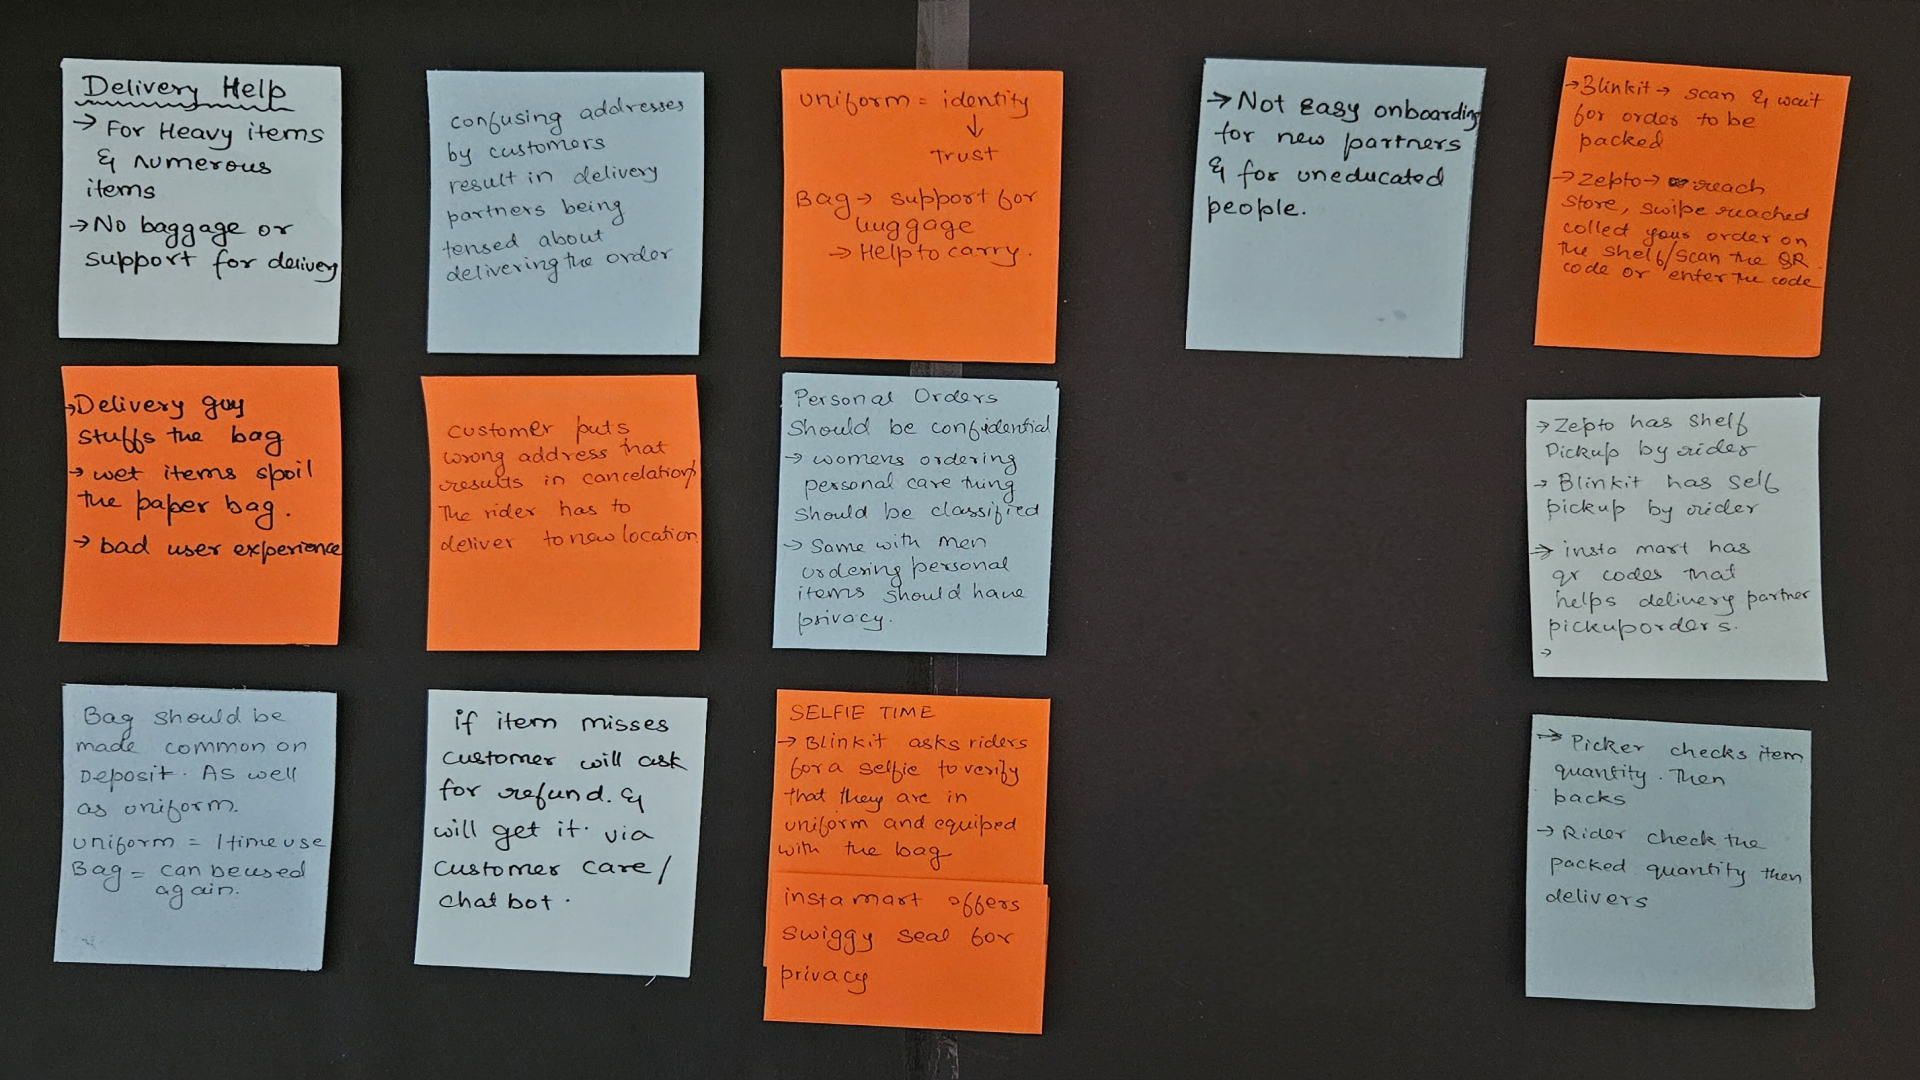 Delivery Help
→ For Heavy items
& numerous
items
→ No baggage or
support for delivery
→ Delivery guy
stuffs the bag
→ wet items spoil
the paper bag.
→ bad user experience
Bag should be
made common on
Deposit. As well
as uniform.
uniform = 1 time use
Bag = can be used
again.
confusing addresses
by customers
result in delivery
partners being
tensed about
delivering the order
customer puts
wrong address that
results in cancelation/
The rider has to
deliver to new location.
if item misses
customer will ask
for refund. &
will get it. via
customer care/
chat bot.
uniform = identity
↓
Trust
Bag → support for
luggage
→ Help to carry.
Personal Orders
should be confidential
→ womens ordering
personal care thing
should be classified
→ Same with men
ordering personal
items should have
privacy.
SELFIE TIME
→ Blinkit asks riders
for a selfie to verify
that they are in
uniform and equiped
with the bag
insta mart offers
swiggy seal for
privacy
→ Not easy onboarding
for new partners
& for uneducated
people.
→ Blinkit → scan & wait
for order to be
packed
→ Zepto → reach
store, swipe reached
colled your order on
the shelf/scan the QR
code or enter the code
→ Zepto has shelf
Pickup by rider
→ Blinkit has self
pickup by rider
→ insta mart has
qr codes that
helps delivery partner
pickup orders.
→
→ Picker checks item
quantity. Then
packs
→ Rider check the
packed quantity then
delivers